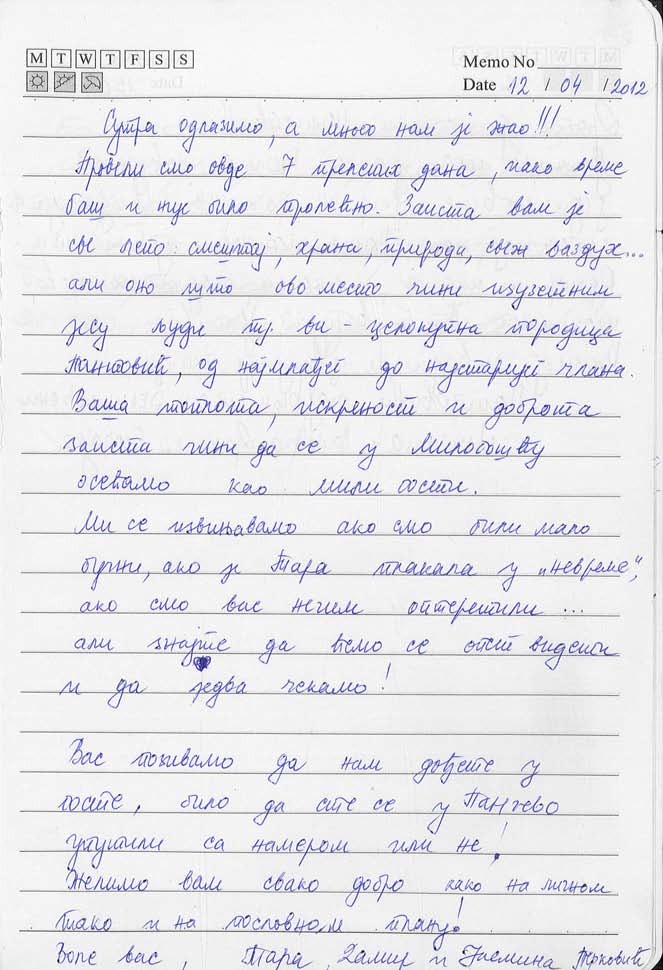 M T W T F S S
Memo No
Date 12 / 04 / 2012
Сутра одлазимо, а много нам је жао!!!
Провели смо овде 7 прелепих дана, иако време
баш и није било пролећно. Заиста вам је
све лепо: смештај, храна, природа, свеж ваздух...
али оно што ово место чини изузетним
јесу људи ту. Ви - целокупна породица
Пантовић, од најмлађег до најстаријег члана.
Ваша топлота, искреност и доброта
заиста чини да се у
осећамо као мили гости.
Ми се извињавамо ако смо били мало
бучни, ако је Тара плакала у "невреме",
ако смо вас нечим оптеретили ...
али знајте да ћемо се опет видети
и да једва чекамо!
Вас позивамо да нам дођете у
госте, било да сте се у Панчево
упутили са намером или не!
Желимо вам свако добро како на личном
тако и на пословном плану!
Воле вас, Тара, Дамир и Јасмина